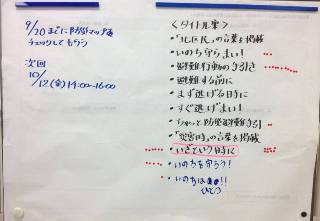 9/20までに防災マップを
チェックしてもらう
次回
10/12(金)14:00-16:00
<タイトル案>
・「北区民」の言葉を掲載
・いのち守らまい!
・避難行動の手引き
・避難する前に
・まず逃げる時に
・すぐ逃げまい!
・ちゃっと防災避難手引
・「災害時」の言葉を掲載
・いざという時に
・いのちを守ろう!
・いのちは
ひとつ